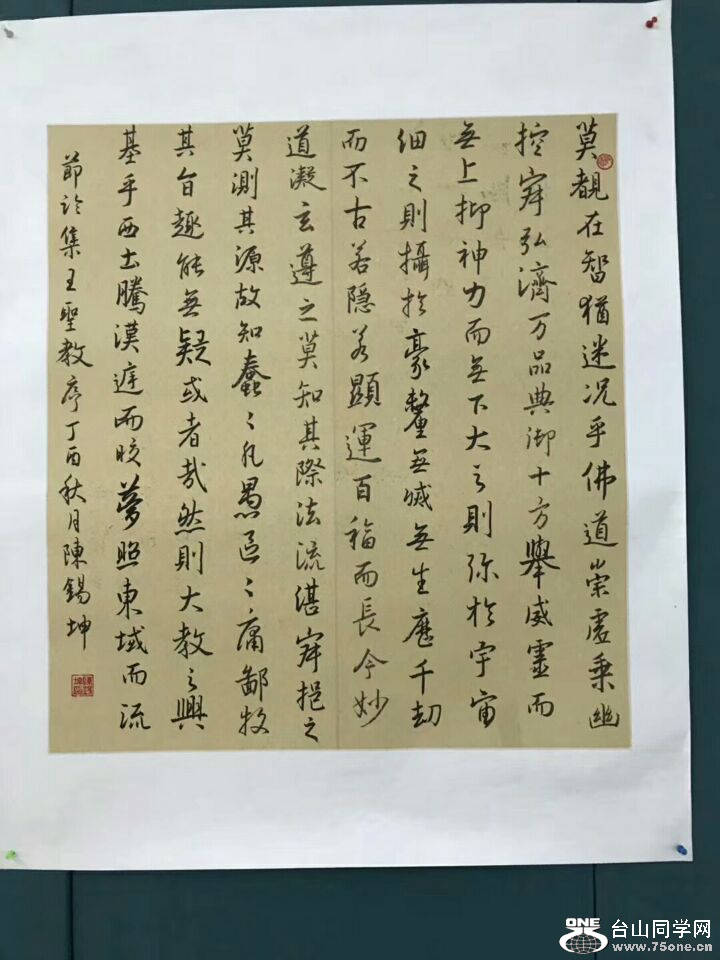 莫覩在智猶迷况乎佛道崇虛乗幽
控寂弘濟万品典御十方舉威靈而
無上抑神力而無下大之則弥於宇宙
細之則攝於豪釐無滅無生歷千劫
而不古若隱若顯運百福而長今妙
道凝玄遵之莫知其際法流湛寂挹之
莫測其源故知蠢〻凡愚區〻庸鄙投
其旨趣能無疑或者哉然則大教之興
基乎西土騰漢庭而皎夢照東域而流
節臨集王聖教序丁酉秋月陳錫坤
ONE 台山同学网
www.75one.cn